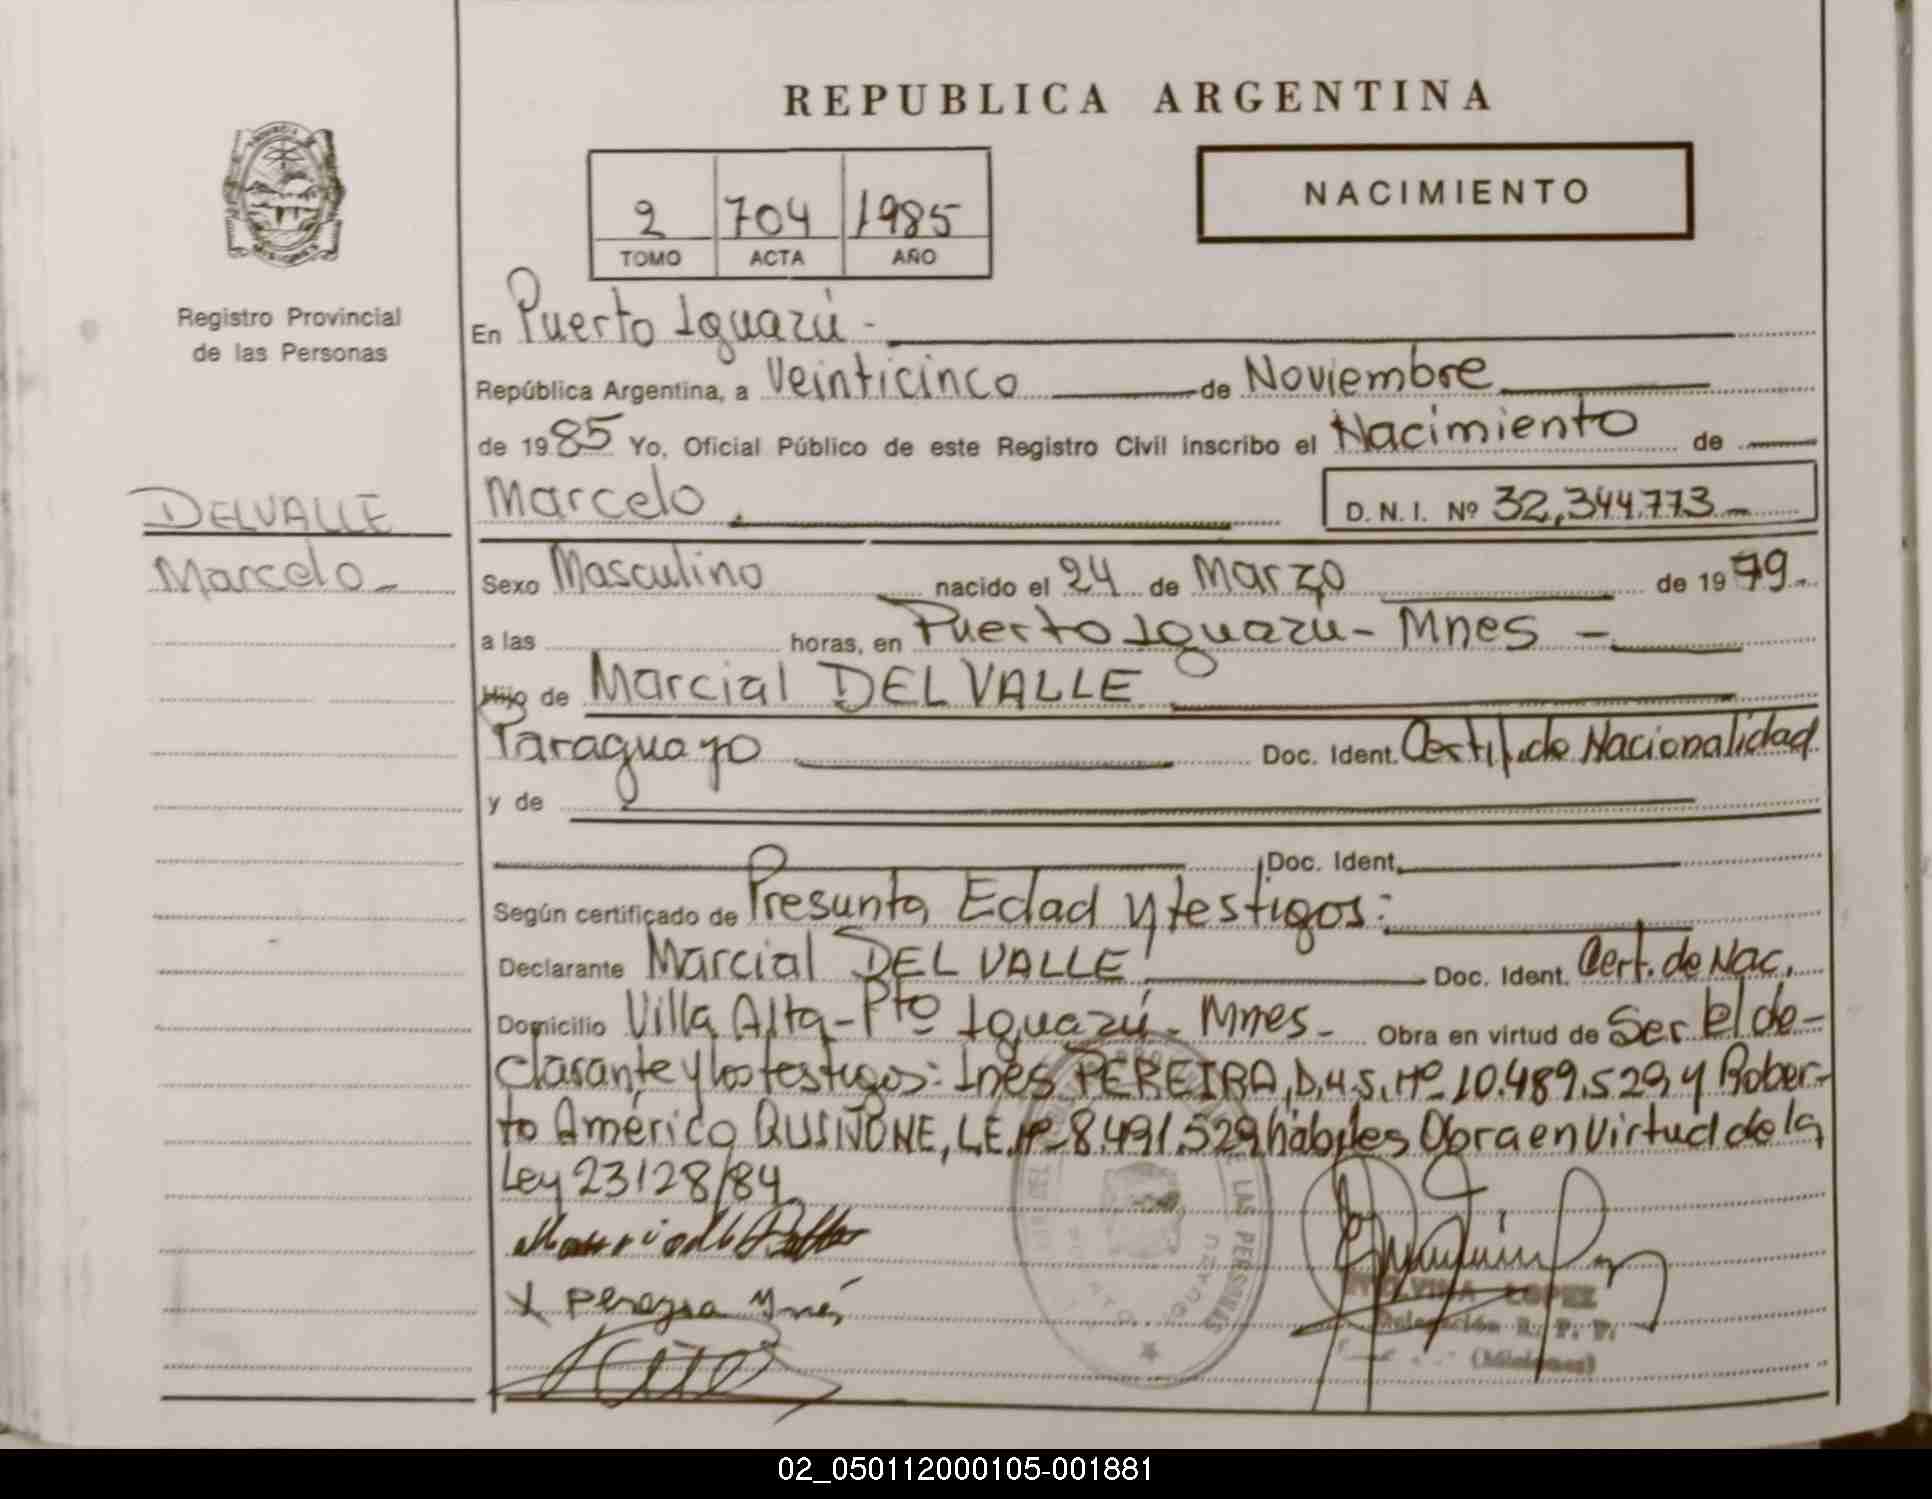 REPUBLICA ARGENTINA
NACIMIENTO
2 704 1985
TOMO ACTA AÑO
Registro Provincial
de las Personas
En Puerto Iguazú -
República Argentina, a Veinticinco de Noviembre
de 1985 Yo, Oficial Público de este Registro Civil inscribo el Nacimiento de
Marcelo D. N. I. Nº 32,344.773
DELVALLE
Marcelo -
Sexo Masculino nacido el 24 de Marzo de 1979.
a las horas, en Puerto Iguazú - Mnes -
Hijo de Marcial DELVALLE
Paraguayo Doc. Ident. Certif. de Nacionalidad
y de
Doc. Ident.
Según certificado de Presunta Edad y testigos:
Declarante Marcial DELVALLE Doc. Ident. Cert. de Nac.
Domicilio Villa Alta - Pto Iguazú - Mnes - Obra en virtud de Ser el de-
clarante y los testigos: Inés PEREIRA, D.U.S. Nº 10.489.529 y Rober-
to Américo QUIÑONE, L.E. Nº 8.491.529 hábiles Obra en Virtud de la
Ley 23128/84
X Pereyra Ynés
LAS PERSONAS
LOPEZ
Delegación R. P. P.
(Misiones)
02_050112000105-001881